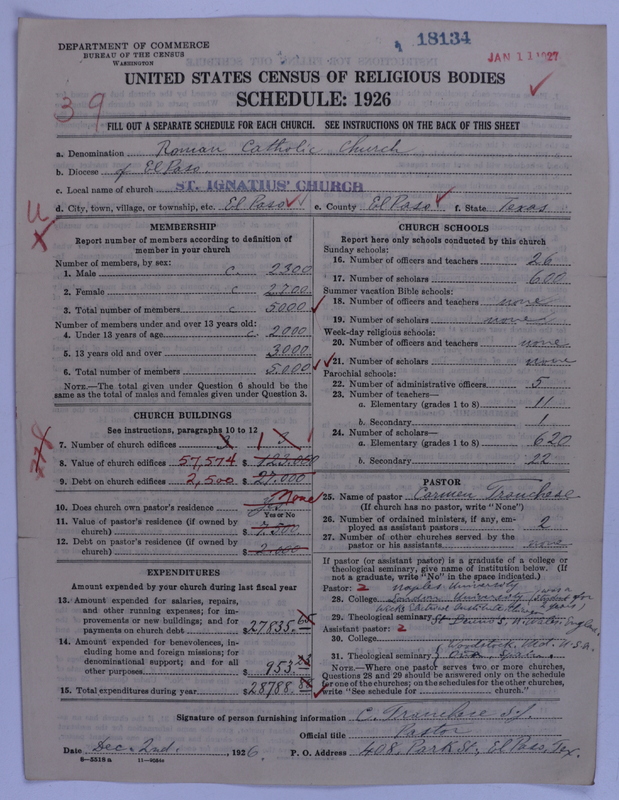 DEPARTMENT OF COMMERCE
BUREAU OF THE CENSUS
WASHINGTON
18134
JAN 11 1927
UNITED STATES CENSUS OF RELIGIOUS BODIES
SCHEDULE: 1926
39
FILL OUT A SEPARATE SCHEDULE FOR EACH CHURCH. SEE INSTRUCTIONS ON THE BACK OF THIS SHEET
a. Denomination Roman Catholic Church
b. Diocese of El Paso
c. Local name of church ST. IGNATIUS' CHURCH
d. City, town, village, or township, etc. El Paso e. County El Paso f. State Texas
MEMBERSHIP
Report number of members according to definition of
member in your church
Number of members, by sex:
1. Male c. 2300
2. Female c 2700
3. Total number of members c 5000
Number of members under and over 13 years old:
4. Under 13 years of age c. 2000
5. 13 years old and over 3000
6. Total number of members 5000
NOTE.—The total given under Question 6 should be the
same as the total of males and females given under Question 3.
CHURCH BUILDINGS
See instructions, paragraphs 10 to 12
7. Number of church edifices 1
8. Value of church edifices 57,574 $ 123.000
9. Debt on church edifices 2,500 $ 27.000
10. Does church own pastor's residence Yes None
Yes or No
11. Value of pastor's residence (if owned by
church) $
12. Debt on pastor's residence (if owned by
church) $
EXPENDITURES
Amount expended by your church during last fiscal year
13. Amount expended for salaries, repairs,
and other running expenses; for im-
provements or new buildings; and for
payments on church debt $27835.
14. Amount expended for benevolences, in-
cluding home and foreign missions; for
denominational support; and for all
other purposes $ 953
15. Total expenditures during year $28788.
CHURCH SCHOOLS
Report here only schools conducted by this church
Sunday schools:
16. Number of officers and teachers 26
17. Number of scholars 600
Summer vacation Bible schools:
18. Number of officers and teachers none
19. Number of scholars none
Week-day religious schools:
20. Number of officers and teachers none
21. Number of scholars none
Parochial schools:
22. Number of administrative officers 5
23. Number of teachers—
a. Elementary (grades 1 to 8) 11
b. Secondary 1
24. Number of scholars—
a. Elementary (grades 1 to 8) 620
b. Secondary 22
PASTOR
25. Name of pastor Carmen Tranchese
(If church has no pastor, write "None")
26. Number of ordained ministers, if any, em-
ployed as assistant pastors 2
27. Number of other churches served by the
pastor or his assistants none
If pastor (or assistant pastor) is a graduate of a college or
theological seminary, give name of institution below. (If
not a graduate, write "No" in the space indicated.)
Pastor: 2 Naples University
28. College London University
29. Theological seminary
Assistant pastor: 2
30. College
Woodstock, Md. U.S.A.
31. Theological seminary
NOTE.—Where one pastor serves two or more churches,
Questions 28 and 29 should be answered only on the schedule
for one of the churches; on the schedules for the other churches,
write "See schedule for church."
Signature of person furnishing information C. Tranchese S.J.
Official title Pastor
Date Dec. 2nd, 1926. P. O. Address 408 Park St., El Paso, Tex.
8—5518 a